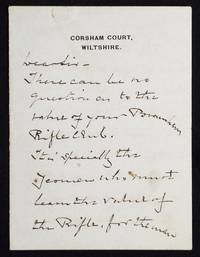 CORSHAM COURT,
WILTSHIRE.
Dear Sir –
There can be no
question as to the
value of your
Rifle Club.
It is specially the
Yeoman who must
learn the value of
the Rifle, for the men